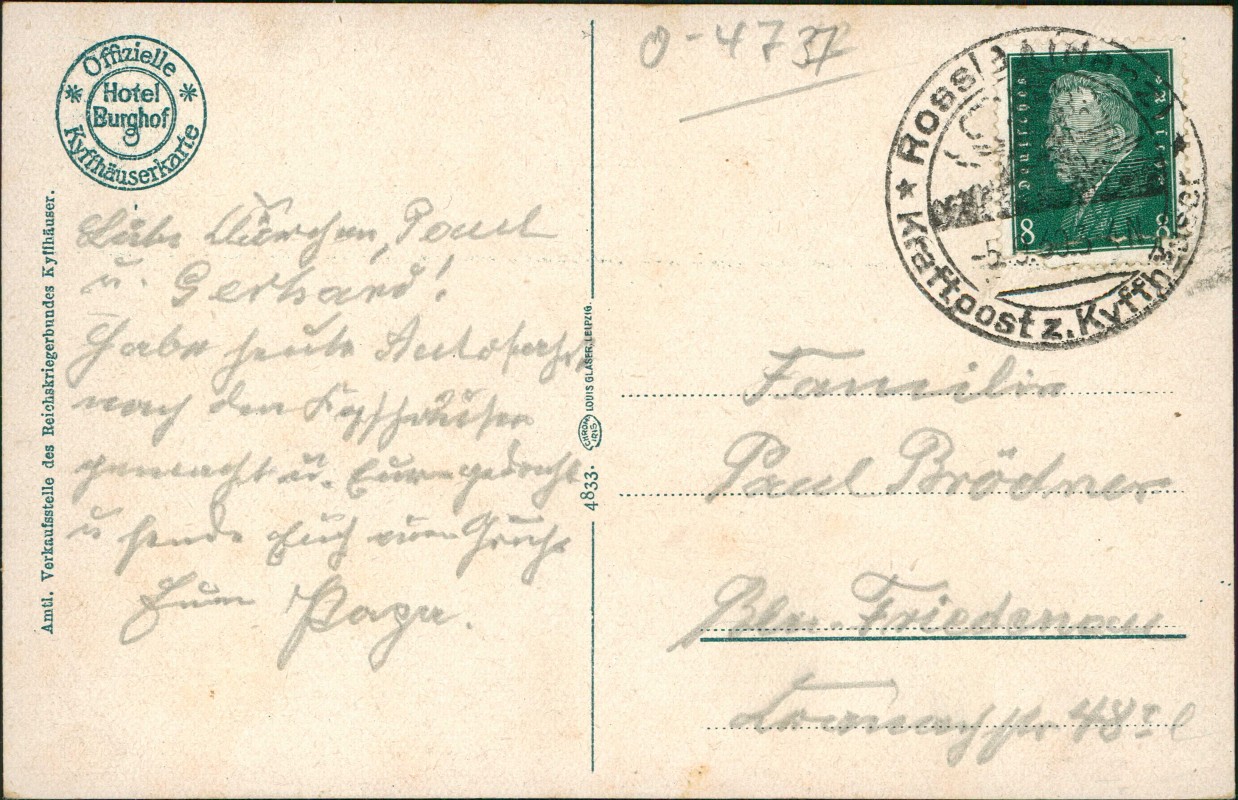 Offizielle
Hotel
Burghof
Kyffhäuserkarte
Amtl. Verkaufsstelle des Reichskriegerbundes Kyffhäuser.
Paul
u. Gerhard!
Habe heute Autofahrt
nach dem Kyffhäuser
gemacht u. Eurer gedacht
u sende Euch einen Gruß
Euer Papa.
4833. CHROM IRIS LOUIS GLASER, LEIPZIG.
O-4737
Rossla
Kraftpost z. Kyffhäuser
Deutsches
8 8
Familie
Paul Brödner
Bln. Friedenau
48